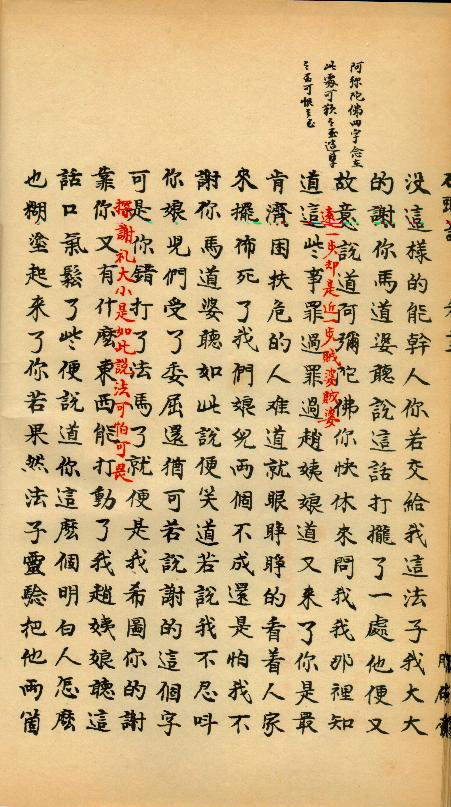 阿弥陀佛四字念在
此處可歎之至造孽
之至可恨之至
没這樣的能幹人你若交給我這法子我大大
的謝你馬道婆聽說這話打攏了一處他便又
故意說道阿彌陀佛你快休來問我我那裡知
遠一步却是近一步賊婆賊婆
道這些事罪過罪過趙姨娘道又来了你是最
肯濟困扶危的人难道就眼睁睁的看着人家
來擺佈死了我們娘兒兩個不成還是怕我不
謝你馬道婆聽如此說便笑道若說我不忍呌
你娘児們受了委屈還猶可若說謝的這個字
可是你錯打了法馬了就便是我希圖你的謝
探謝礼大小是如此説法可怕可畏
靠你又有什麽東西能打動了我趙姨娘聽這
話口氣鬆了些便說道你這麽個明白人怎麽
也糊塗起来了你若果然法子靈驗把他兩箇